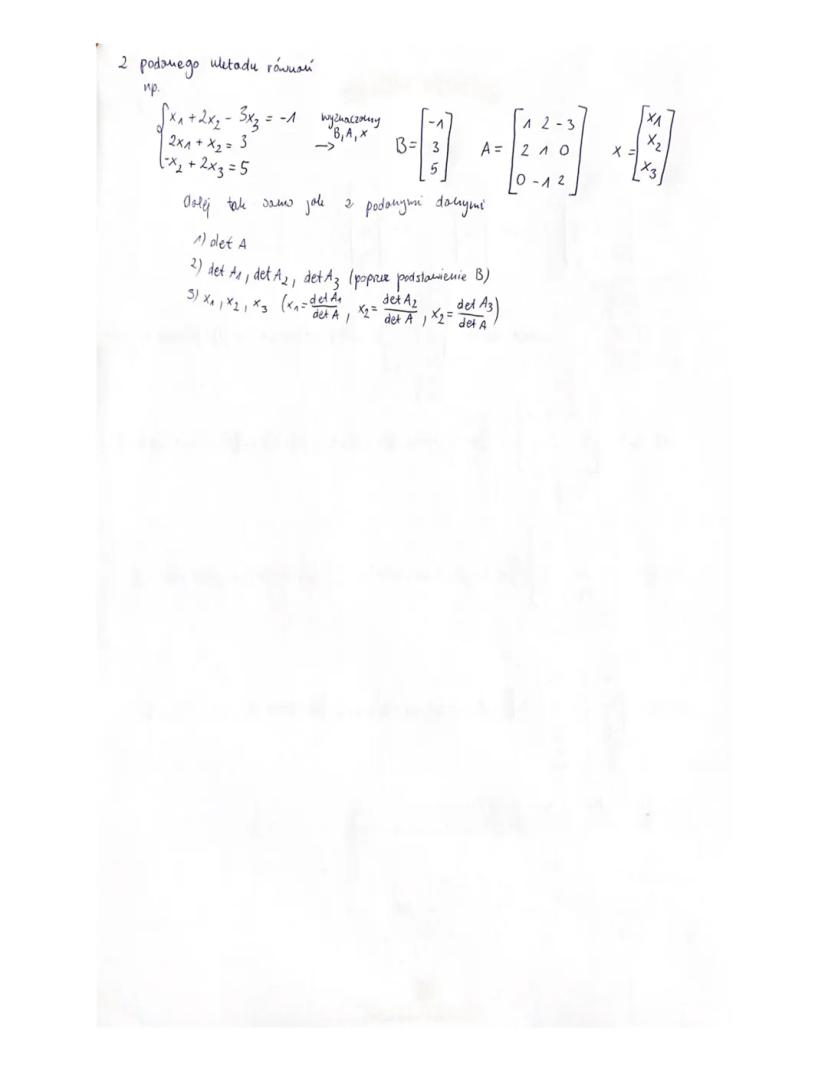 Z podanego układu równań
np.
{x₁ + 2x₂ - 3x₃ = -1
2x₁ + x₂ = 3
-x₂ + 2x₃ = 5
wyznaczamy
B, A, x
→
B = [-1
3
5]
A = [1 2 -3
2 1 0
0 -1 2]
x = [x₁
x₂
x₃]
Dalej tak samo jak z podanymi danymi
1) det A
2) det A₁, det A₂, det A₃ (poprzez podstawienie B)
3) x₁, x₂, x₃ (x₁ = det A₁ / det A, x₂ = det A₂ / det A, x₂ = det A₃ / det A)